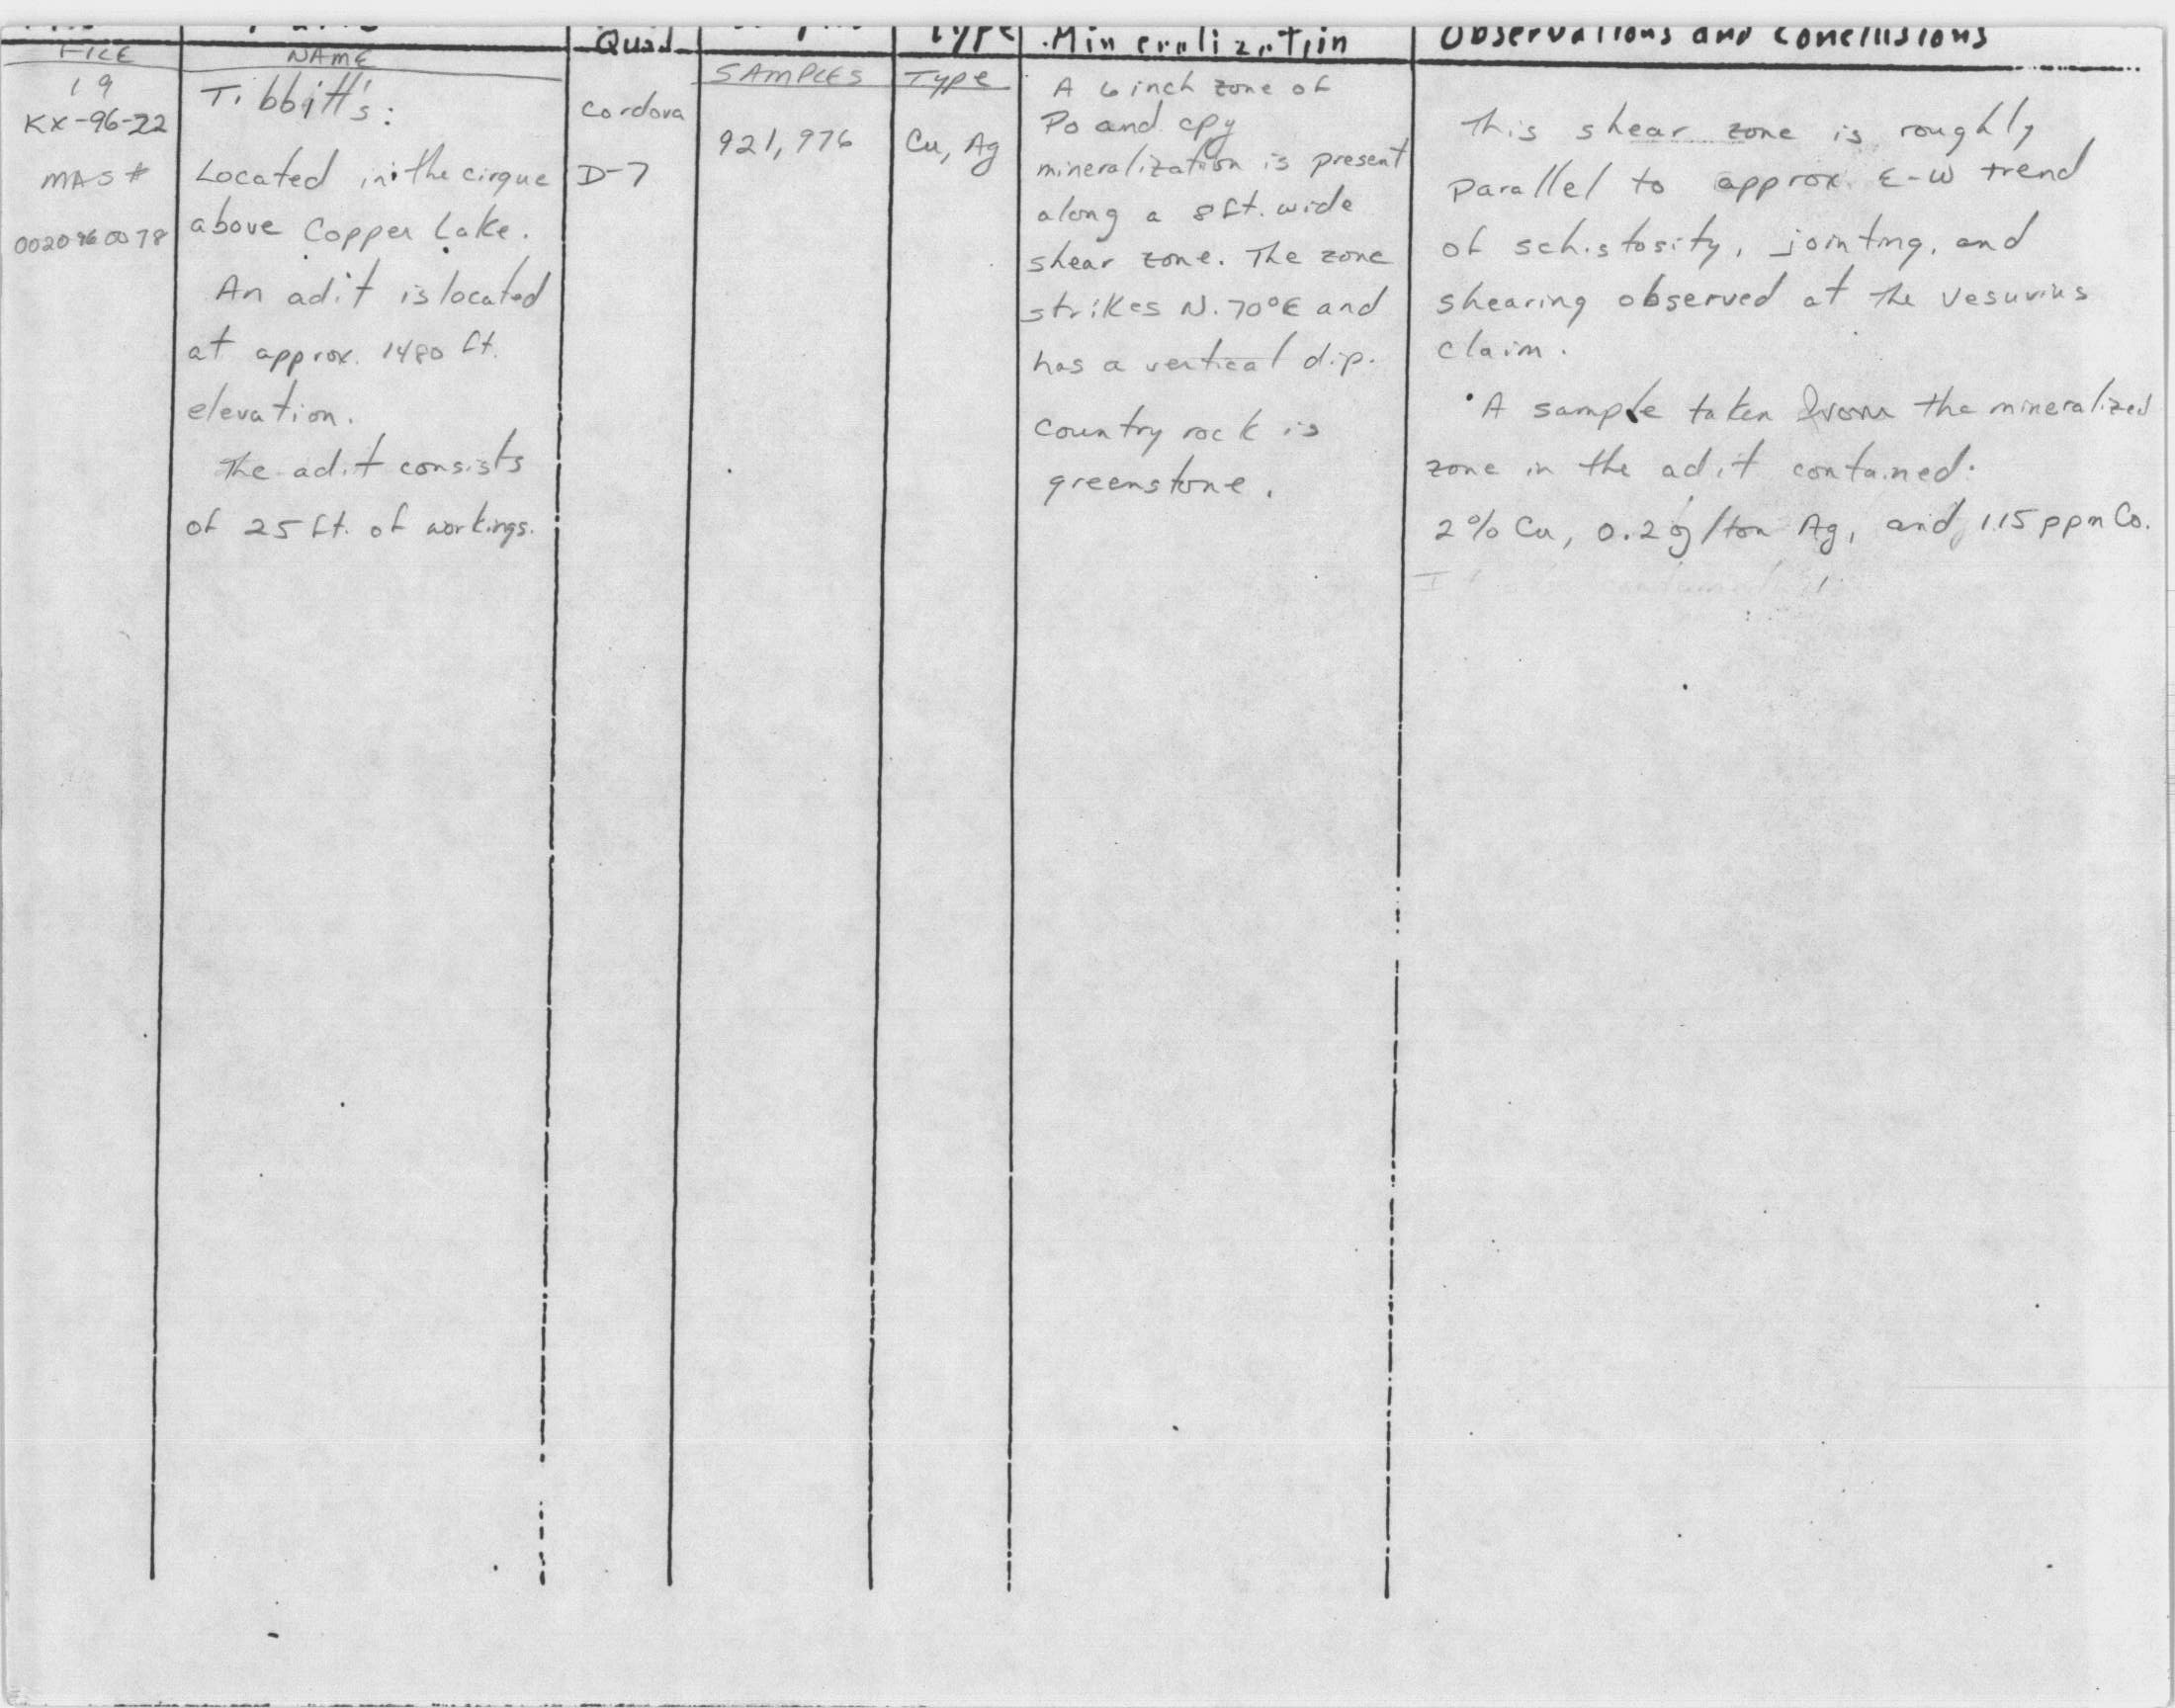 Quad
Type
Mineralization
Observations and Conclusions
FILE
NAME
SAMPLES
Type
19
KX-96-22
MAS #
0020960078
Tibbitt's:
Located in the cirque
above Copper Lake.
An adit is located
at approx. 1480 ft.
elevation.
The adit consists
of 25 ft. of workings.
Cordova
D-7
921, 976
Cu, Ag
A 6 inch zone of
Po and cpy
mineralization is present
along a 8 ft. wide
shear zone. The zone
strikes N. 70°E and
has a vertical dip.
Country rock is
greenstone.
This shear zone is roughly
parallel to approx. E-W trend
of schistosity, jointing, and
shearing observed at the Vesuvius
claim.
• A sample taken from the mineralized
zone in the adit contained
2% Cu, 0.2 g/ton Ag, and 115 ppm Co.